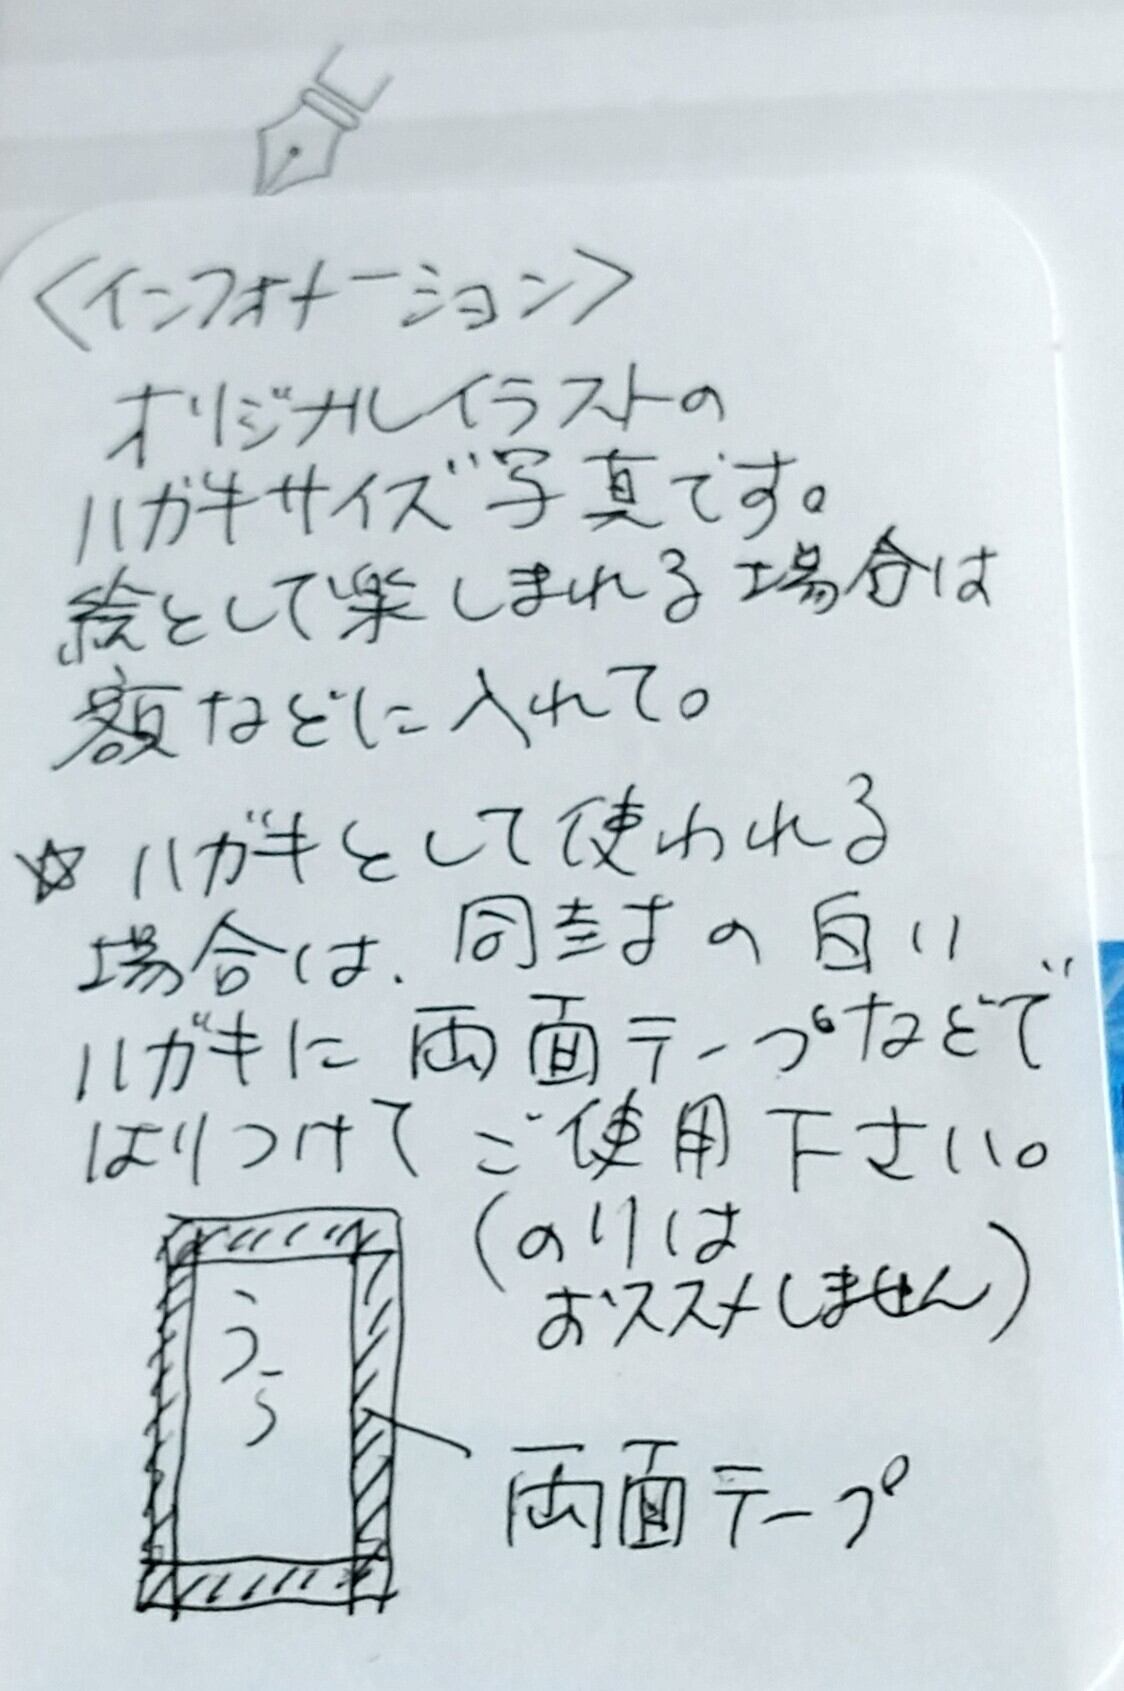 <インフォメーション>
オリジナルイラストの
ハガキサイズ写真です。
絵として楽しまれる場合は
額などに入れて。
☆ハガキとして使われる
場合は、同封の白い
ハガキに両面テープなどで
はりつけてご使用下さい。
(のりは
おススメしません)
うら
両面テープ